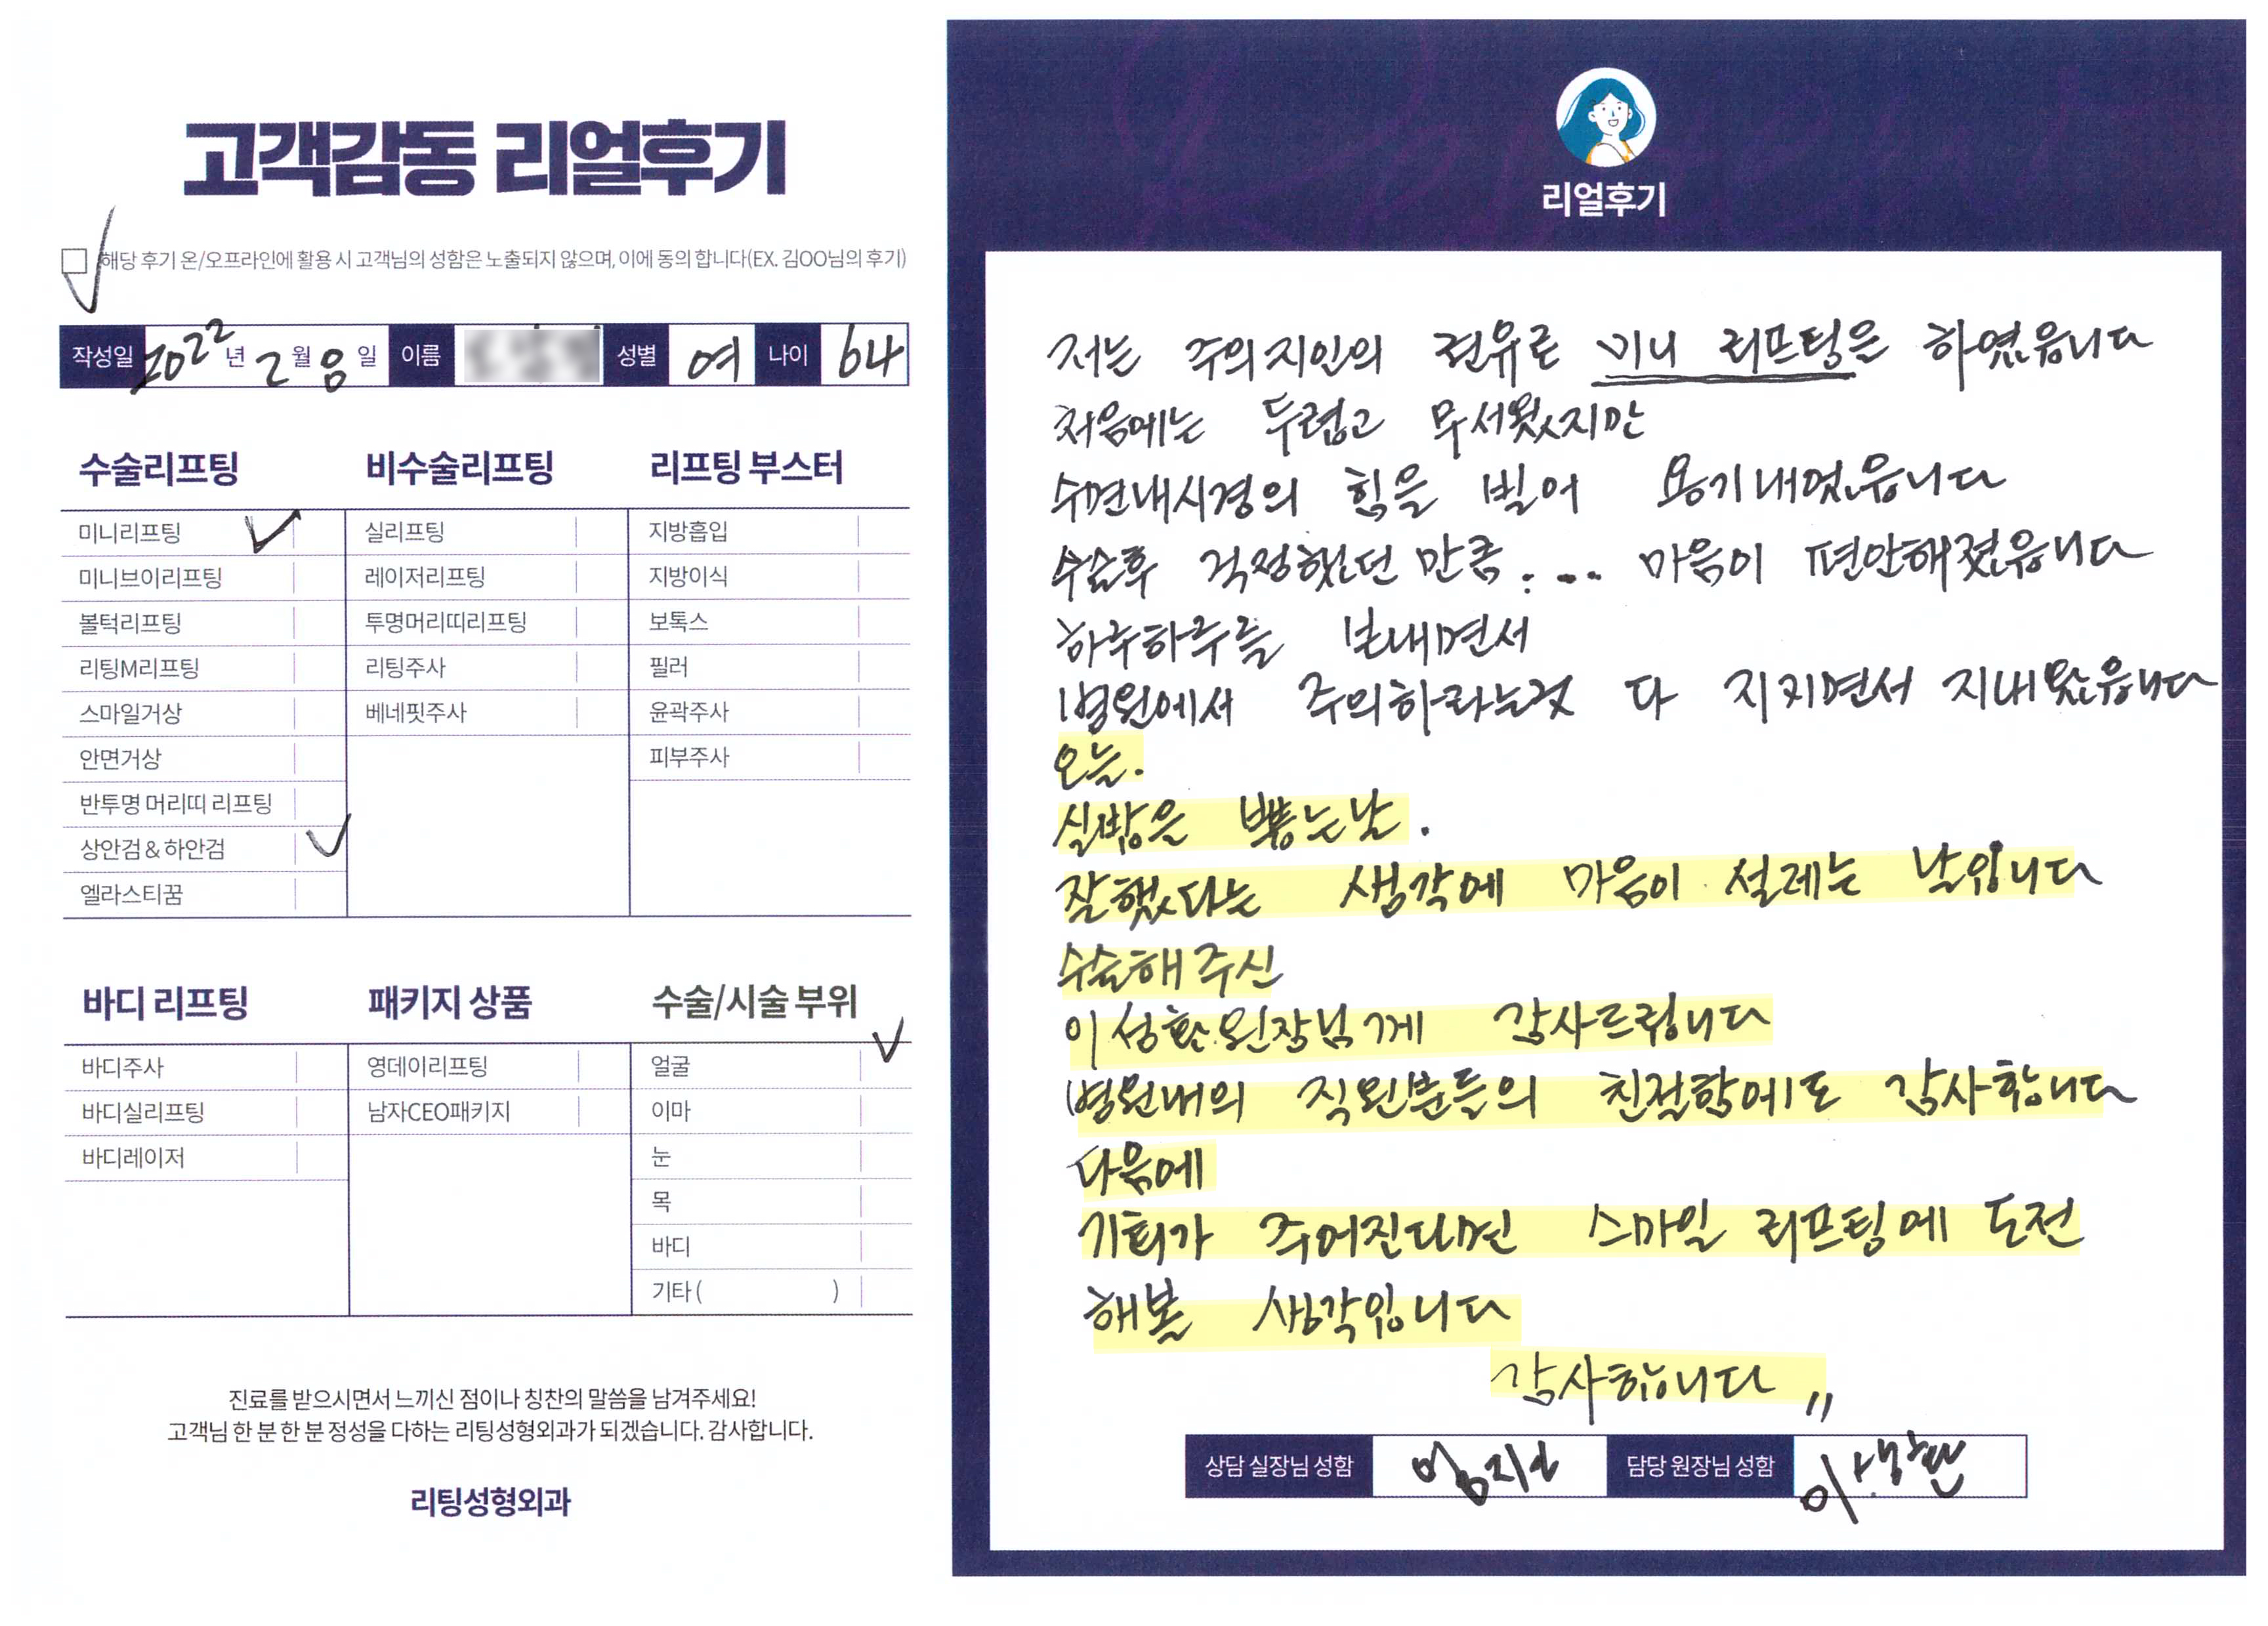 고객감동 리얼후기
해당 후기 온/오프라인에 활용 시 고객님의 성함은 노출되지 않으며, 이에 동의 합니다(EX. 김OO님의 후기)
작성일 2022년 2월 8일 이름 성별 여 나이 64
수술리프팅
미니리프팅
미니브이리프팅
볼턱리프팅
리팅M리프팅
스마일거상
안면거상
반투명 머리띠 리프팅
상안검 & 하안검
엘라스티꿈
비수술리프팅
실리프팅
레이저리프팅
투명머리띠리프팅
리팅주사
베네핏주사
리프팅 부스터
지방흡입
지방이식
보톡스
필러
윤곽주사
피부주사
바디 리프팅
바디주사
바디실리프팅
바디레이저
패키지 상품
영데이리프팅
남자CEO패키지
수술/시술 부위
얼굴
이마
눈
목
바디
기타 ( )
진료를 받으시면서 느끼신 점이나 칭찬의 말씀을 남겨주세요!
고객님 한 분 한 분 정성을 다하는 리팅성형외과가 되겠습니다. 감사합니다.
리팅성형외과
리얼후기
저는 주의지인의 권유로 미니 리프팅을 하였읍니다
처음에는 두렵고 무서웠지만
수면내시경의 힘을 빌어 용기내었읍니다
수술후 걱정했던 만큼.... 마음이 편안해졌읍니다
하루하루를 보내면서
병원에서 주의하라는것 다 지키면서 지내왔읍니다
오늘.
실밥을 뽑는날.
잘했다는 생각에 마음이 설레는 날입니다
수술해주신
이성환원장님께 감사드립니다
병원내의 직원분들의 친절함에도 감사합니다
다음에
기회가 주어진다면 스마일 리프팅에 도전
해볼 생각입니다
감사합니다 〃
상담 실장님 성함 담당 원장님 성함 이성환